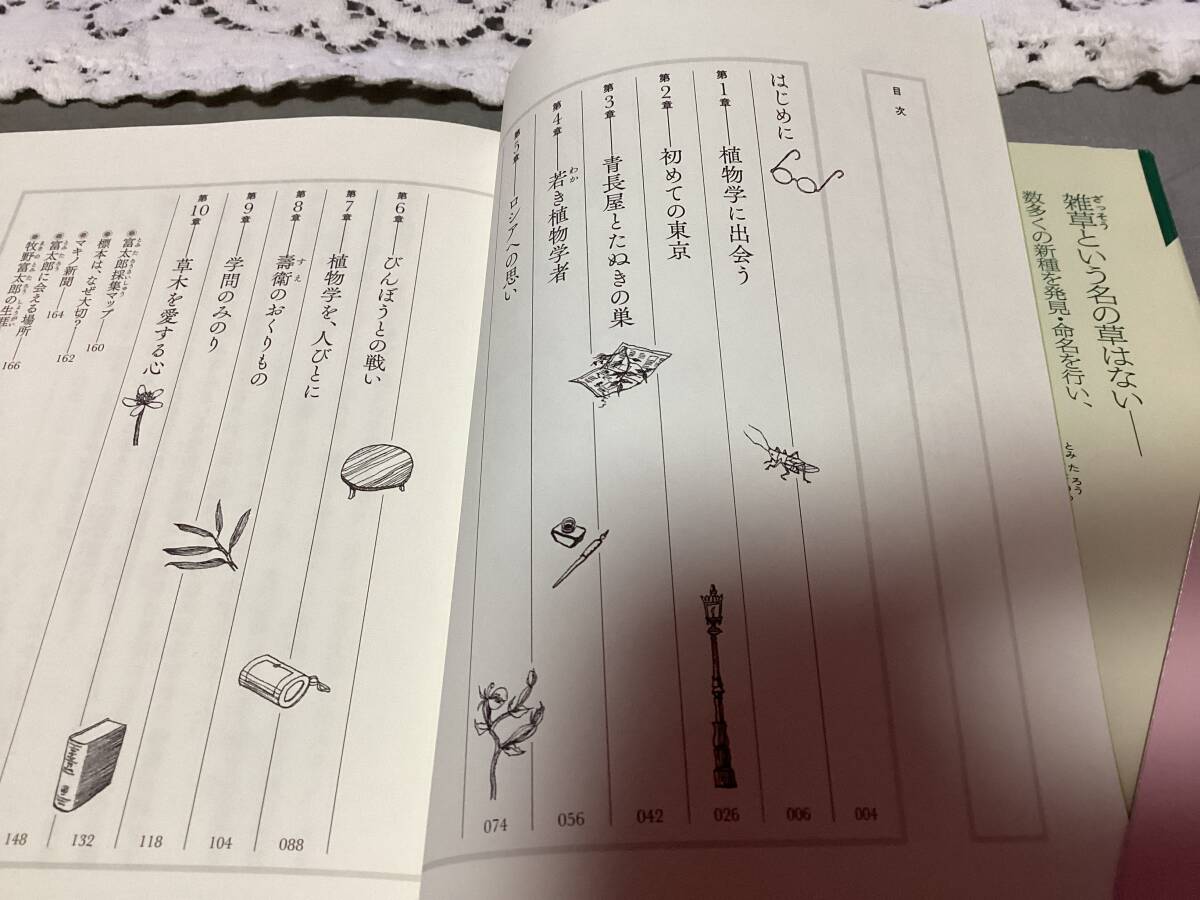 雑草という名の草はない――
ざっそう
数多くの新種を発見・命名を行い、
とみたろう
目次
はじめに
004
第1章――植物学に出会う
006
第2章――初めての東京
026
第3章――青長屋とたぬきの巣
042
第4章――若き植物学者
わか
056
第5章――ロシアへの思い
074
第6章――びんぼうとの戦い
088
第7章――植物学を、人びとに
104
第8章――壽衛のおくりもの
すえ
118
第9章――学問のみのり
132
第10章――草木を愛する心
148
富太郎採集マップ――160
とみたろうさいしゅう
標本は、なぜ大切?――162
マキノ新聞――164
富太郎に会える場所――166
とみたろう
牧野富太郎の生涯
まきのとみたろう しょうがい